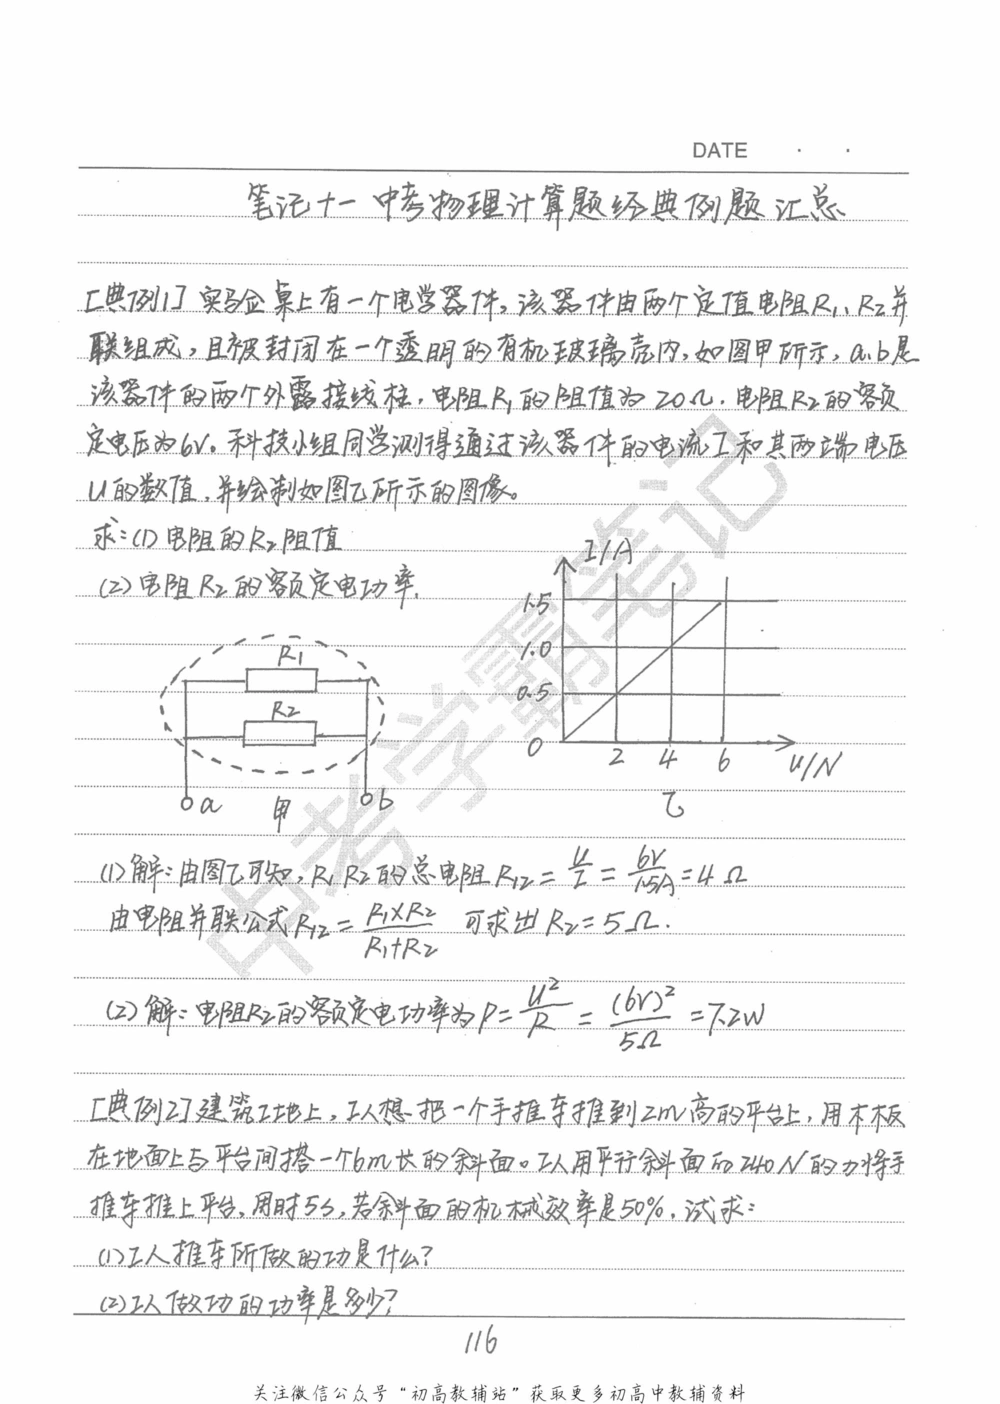 DATE · ·
笔记十一 中考物理计算题经典例题汇总
[典例1] 实验企桌上有一个电学器件,该器件由两个定值电阻R₁、R₂并
联组成,且被封闭在一个透明的有机玻璃壳内,如图甲所示,a、b是
该器件的两个外露接线柱,电阻R₁的阻值为20Ω.电阻R₂的客页
定电压为6V。科技小组同学测得通过该器件的电流I和其两端电压
U的数值,并绘制如图乙所示的图像。
求:(1)电阻的R₂阻值
(2)电阻R₂的客页定电功率.
I/A
1.5
1.0
0.5
0 2 4 6 U/N
乙
R₁
R₂
a 甲 b
(1)解:由图乙可知,R₁R₂的总电阻R₁₂=U/I=6V/1.5A=4Ω
由电阻并联公式R₁₂=R₁×R₂/R₁+R₂ 可求出R₂=5Ω.
(2)解:电阻R₂的客页定电功率为P=U²/R=(6V)²/5Ω=7.2W
[典例2]建筑工地上,工人想把一个手推车推到2m高的平台上,用木板
在地面上与平台间搭一个6m长的斜面。工人用平行斜面的240N的力将手
推车推上平台,用时5s,若斜面的机械效率是50%.试求:
(1)工人推车所做的功是什么?
(2)工人做功的功率是多少?
116
关注微信公众号“初高教辅站”获取更多初高中教辅资料
中考学霸笔记